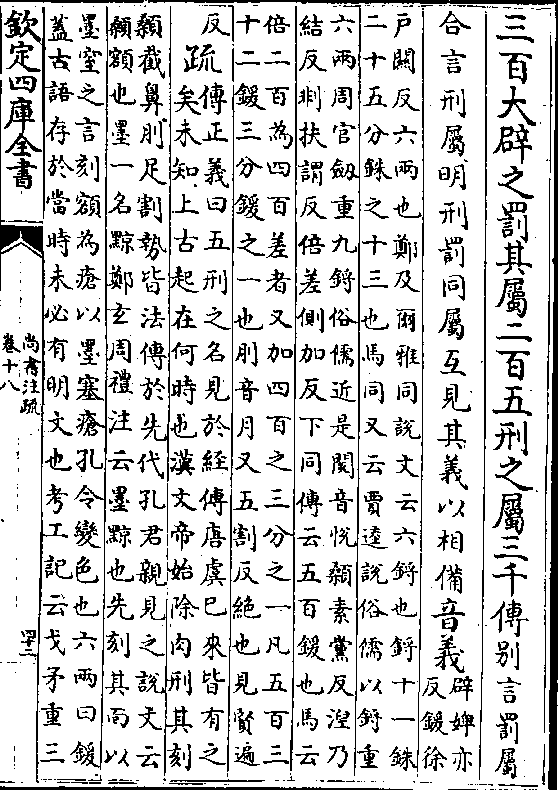 三百大辟之罰其屬二百五刑之屬三千傳別言罰屬
合言刑屬明刑罰同屬互見其義以相備音義辟婢亦
反鍰徐
戶關反六兩也鄭及爾雅同說文云六鋝也鋝十一銖
二十五分銖之十三也馬同又云賈逵說俗儒以鋝重
六兩周官劔重九鋝俗儒近是閱音悅顙素黨反湼乃
結反剕扶謂反倍差側加反下同傳云五百鍰也馬云
倍二百為四百差者又加四百之三分之一凡五百三
十二鍰三分鍰之一也刖音月又五割反絶也見賢遍
反
疏傳正義曰五刑之名見於經傳唐虞已來皆有之
矣未知上古起在何時也漢文帝始除肉刑其刻
顙截鼻刖足割勢皆法傳於先代孔君親見之說文云
顙額也墨一名黥鄭玄周禮注云墨黥也先刻其面以
墨窒之言刻額為瘡以墨塞瘡孔令變色也六兩曰鍰
蓋古語存於當時未必有明文也考工記云戈矛重三
欽定四庫全書
尚書注疏
卷十八